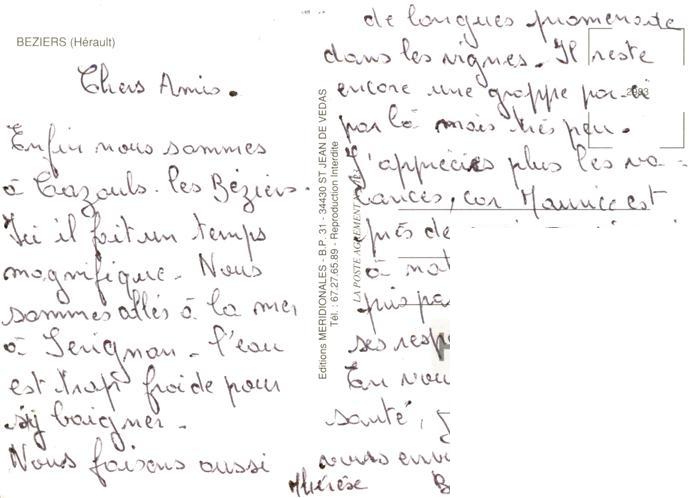 BEZIERS (Hérault)
Chers Amis.
Enfin nous sommes
à Cazouls-les Béziers.
Ici il fait un temps
magnifique. Nous
sommes allés à la mer
à Serignan. l'eau
est trop froide pour
s'y baigner.
Nous faisons aussi
Editions MERIDIONALES - B.P. 31 - 34430 ST JEAN DE VEDAS
Tél. : 67.27.65.89 - Reproduction Interdite
LA POSTE AGREMENT
de longues promenade
dans les vignes. Il reste
encore une grappe par-ci
par là mais très peu.
J'apprécies plus les va-
cances, car Maurice est
près de
à
puis pa
ses resp
En vou
santé,
nous env
Thérèse B